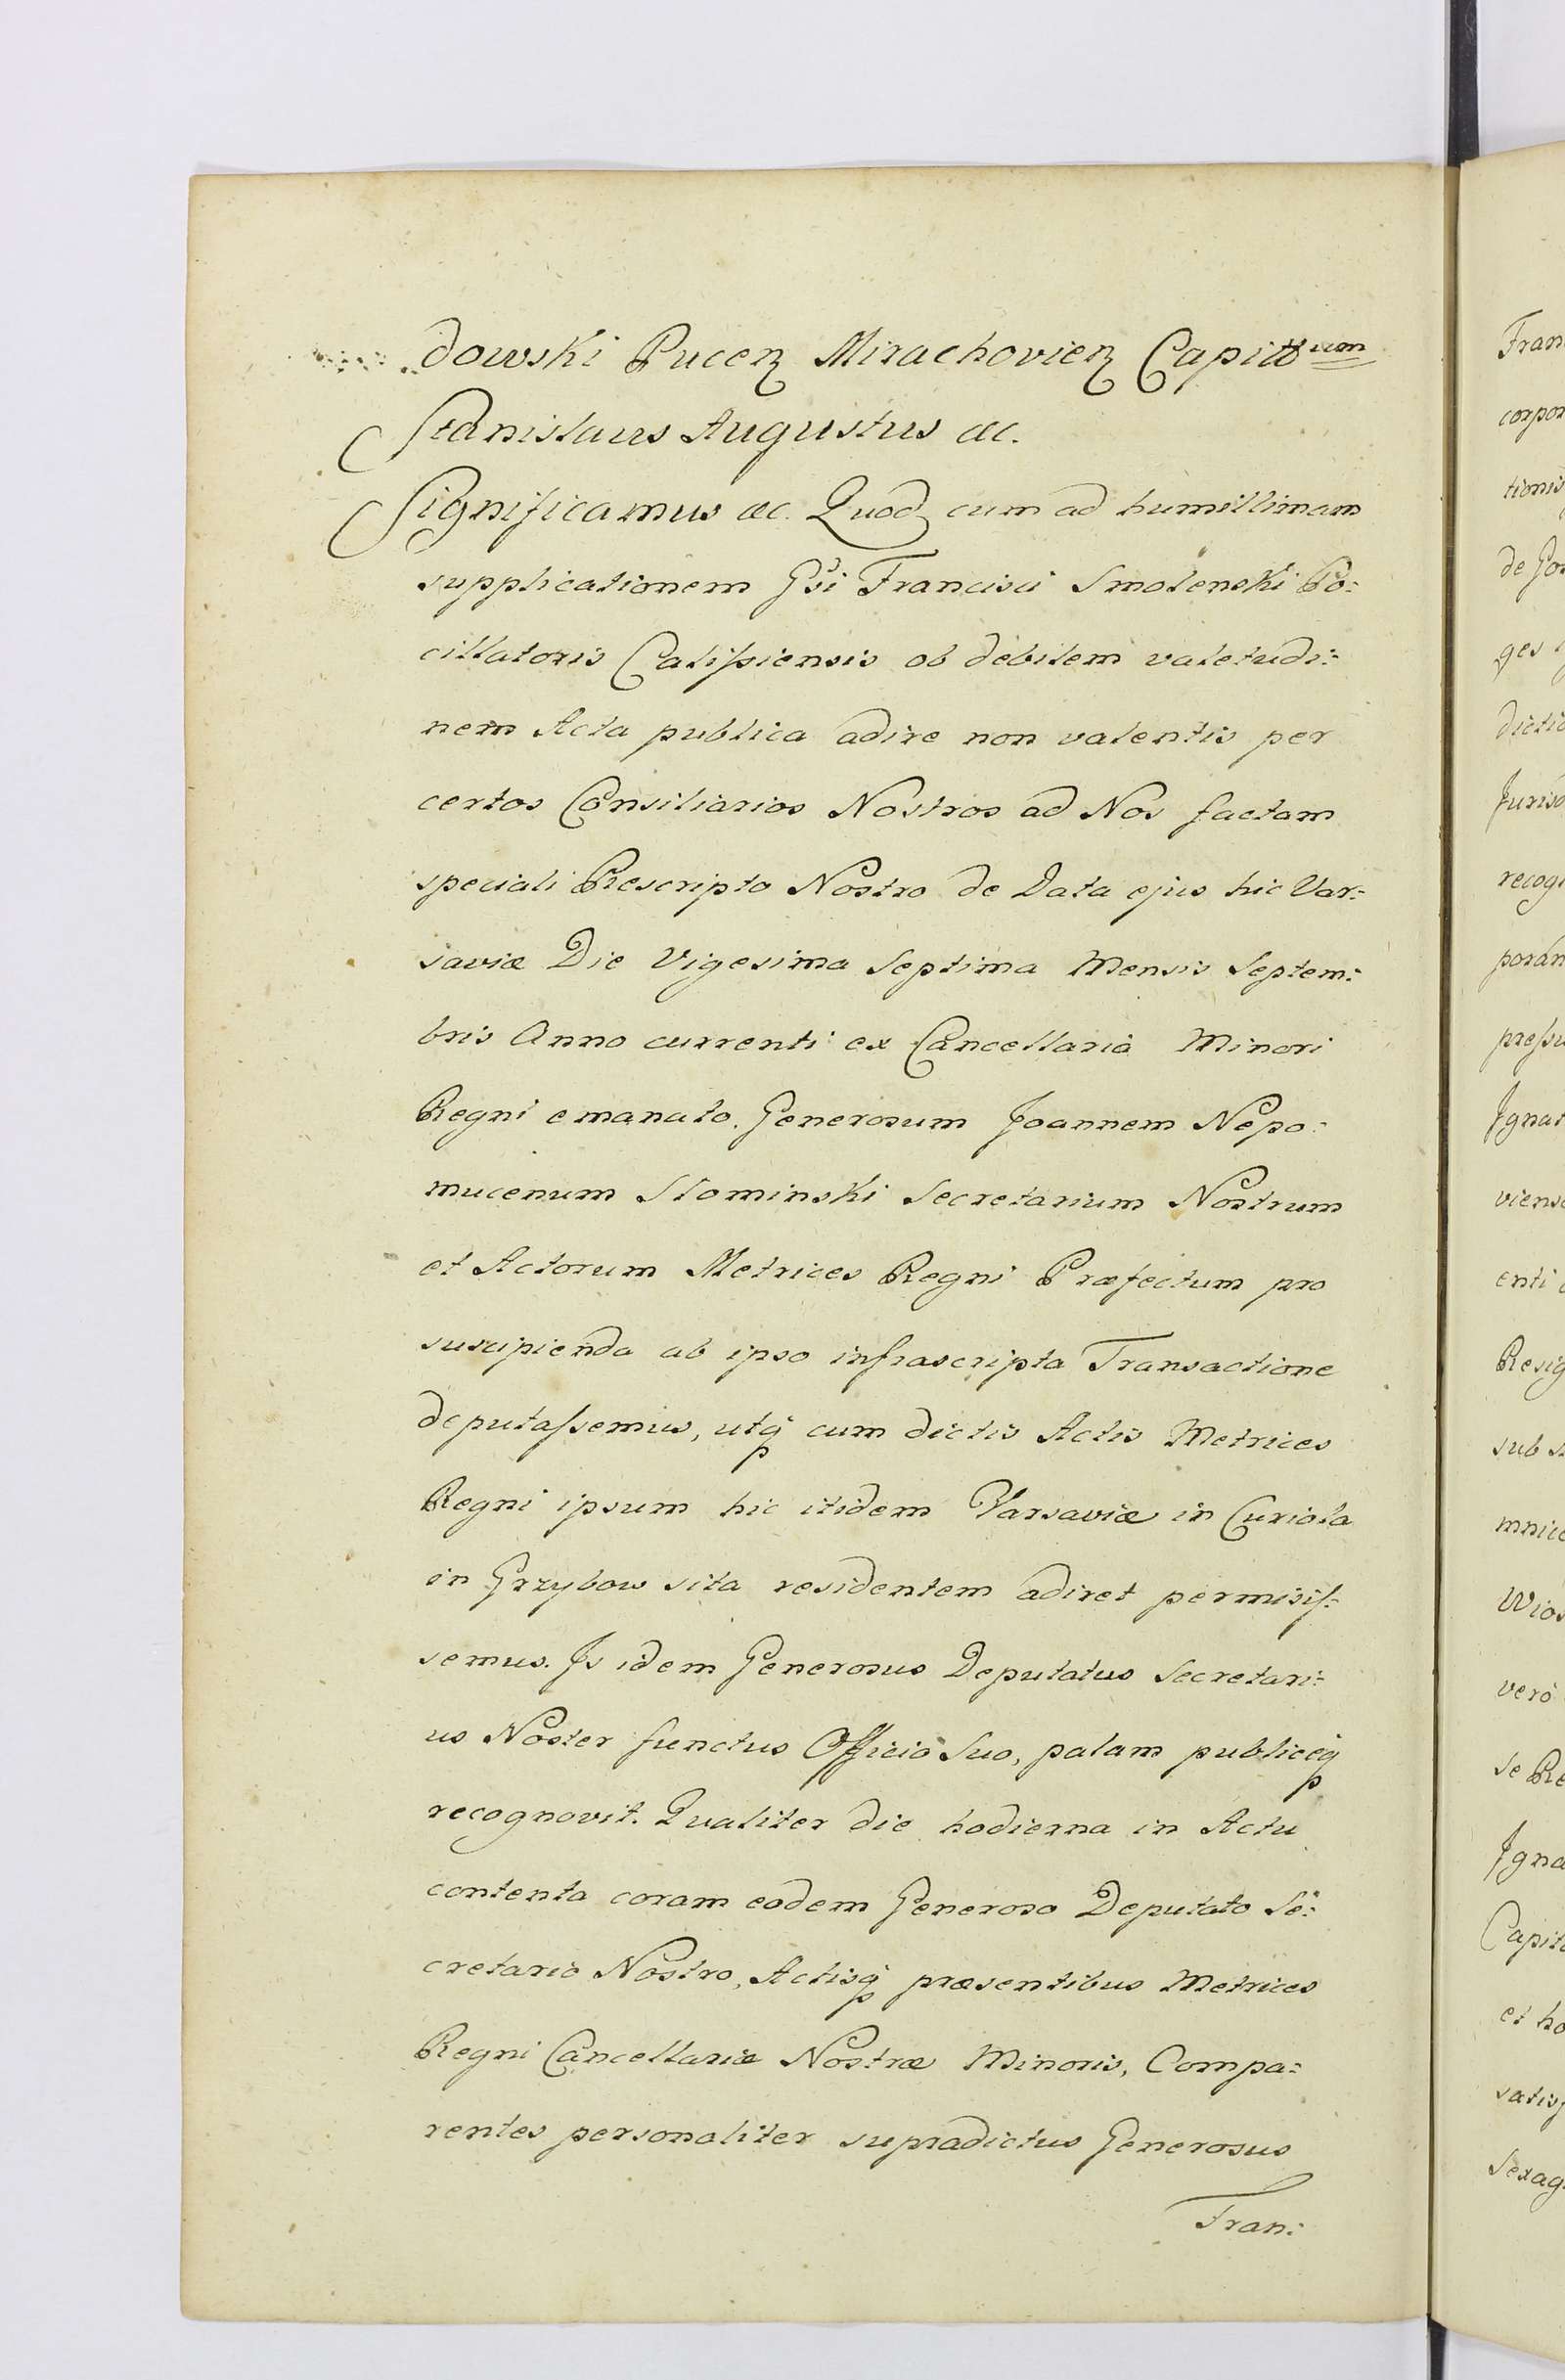 dowski Pucen Mirachovien Capittum
Stanislaus Augustus &c.
Significamus &c. Quod cum ad humillimam
supplicationem Gsi Francisci Smolenski Po:
cillatoris Calissiensis ob debilem valetudi:
nem Acta publica adire non valentis per
certos Consiliarios Nostros ad Nos factam
speciali Rescripto Nostro de Data ejus hic Var:
saviæ Die Vigesima Septima Mensis Septem:
bris Anno currenti ex Cancellaria Minori
Regni emanato. Generosum Joannem Nepo:
mucenum Slominski Secretarium Nostrum
et Actorum Metrices Regni Præfectum pro
suscipienda ab ipso infrascripta Transactione
deputassemus, utq cum dictis Actis Metrices
Regni ipsum hic itidem Varsaviæ in Curiola
in Grzybow sita residentem adiret permisis:
semus. Is idem Generosus Deputatus Secretari:
us Noster functus Officio Suo, palam publiceq
recognovit. Qualiter die hodierna in Actu
contenta coram eodem Generoso Deputato Se:
cretario Nostro, Actisq præsentibus Metrices
Regni Cancellariæ Nostræ Minoris, Compa:
rentes personaliter supradictus Generosus
Fran:
Fran
corpor
tionis
de Gos
ges
dictio
Juriso
recog
poran
pressu
Ignat
viens
enti
Resig
sub
mnic
Wios
verò
se Re
Igna
Capit
et ho
satisf
Sexag